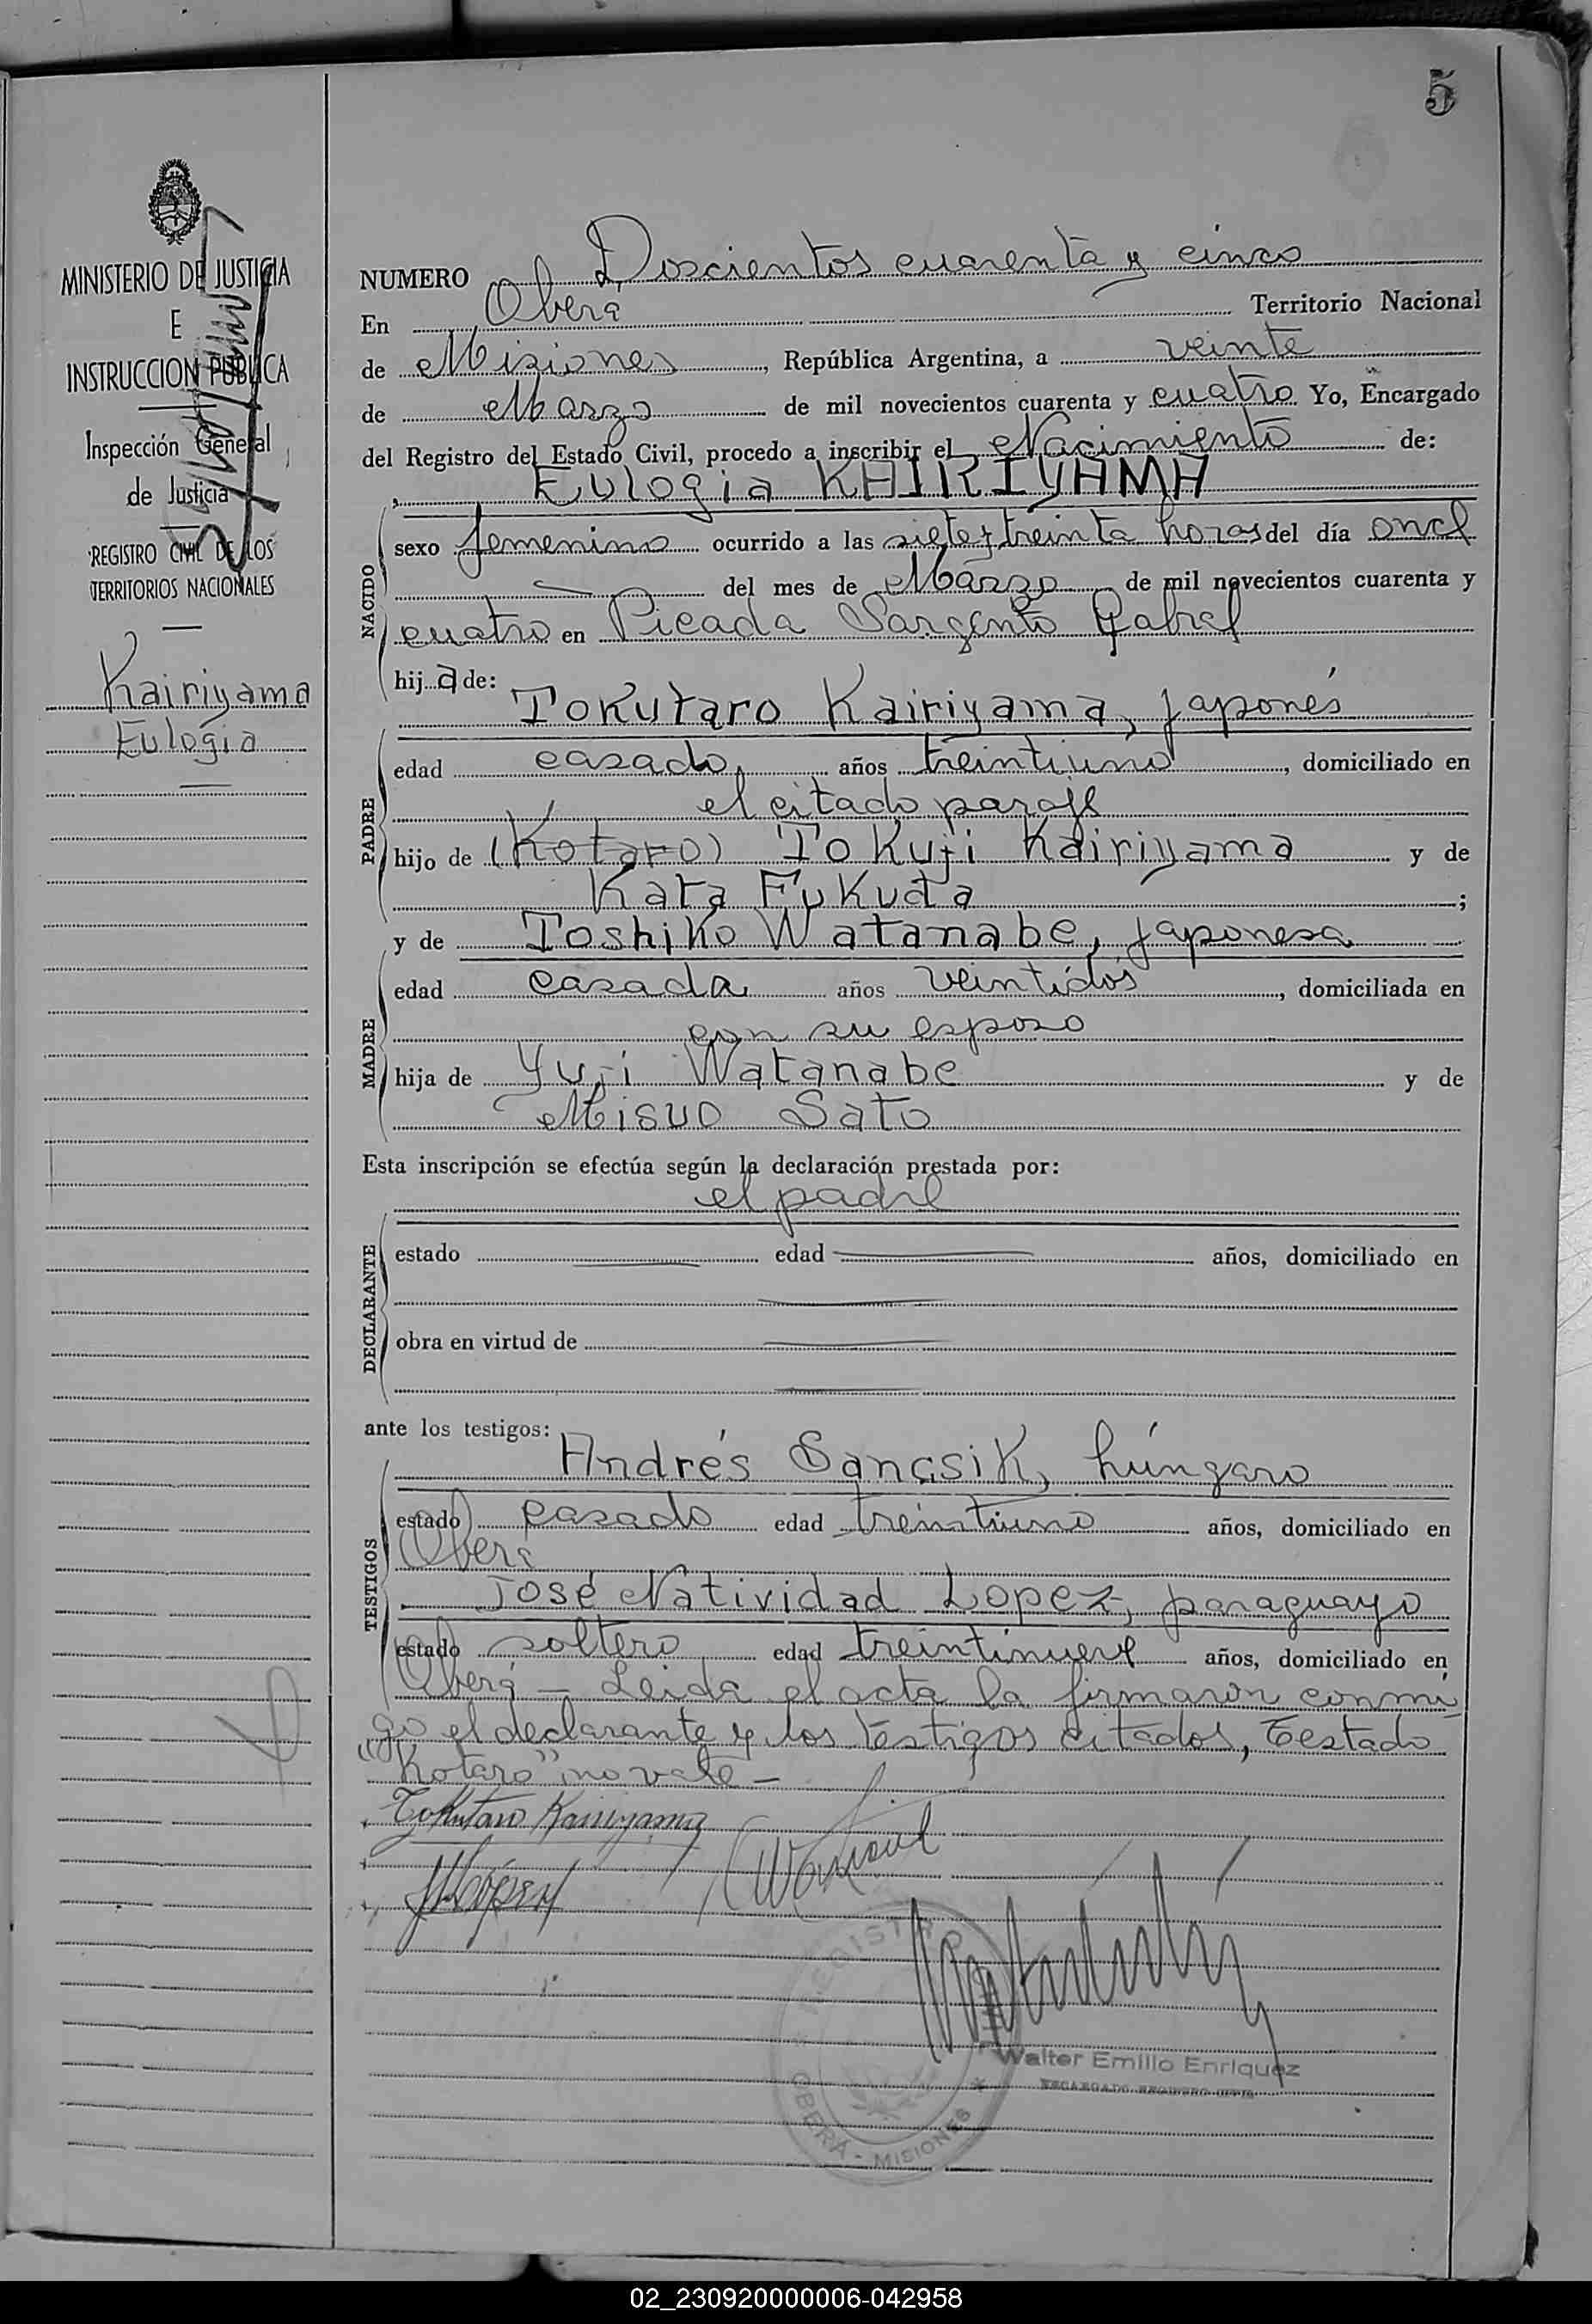 5
MINISTERIO DE JUSTICIA
E
INSTRUCCION PUBLICA
Inspección General
de Justicia
REGISTRO CIVIL DE LOS
TERRITORIOS NACIONALES
Kairiyama
Eulogia
NUMERO Doscientos cuarenta y cinco
En Oberá Territorio Nacional
de Misiones, República Argentina, a veinte
de Marzo de mil novecientos cuarenta y cuatro Yo, Encargado
del Registro del Estado Civil, procedo a inscribir el Nacimiento de:
Eulogia KAIRIYAMA
NACIDO
sexo femenino ocurrido a las siete y treinta horas del día once
del mes de Marzo de mil novecientos cuarenta y
cuatro en Picada Sargento Cabral
hija de:
Tokutaro Kairiyama, japonés
PADRE
edad casado, años treintiuno, domiciliado en
el citado paraje
hijo de (Kotaro) Tokuji Kairiyama y de
Kata Fukuda;
y de Toshiko Watanabe, japonesa
MADRE
edad casada años veintidós, domiciliada en
con su esposo
hija de Yuji Watanabe y de
Misuo Sato
Esta inscripción se efectúa según la declaración prestada por:
el padre
DECLARANTE
estado edad años, domiciliado en
obra en virtud de
ante los testigos:
Andrés Sancsik, húngaro
TESTIGOS
estado casado edad treintiuno años, domiciliado en
Oberá
José Natividad Lopez, paraguayo
estado soltero edad treintinueve años, domiciliado en
Oberá - Leida el acta la firmaron conmi
go el declarante y los testigos citados, Testado
"Kotaro" no vale -
Tokutaro Kairiyama
JNLópez
REGISTRO
OBERÁ - MISIONES
Walter Emilio Enriquez
ENCARGADO REGISTRO CIVIL
02_230920000006-042958